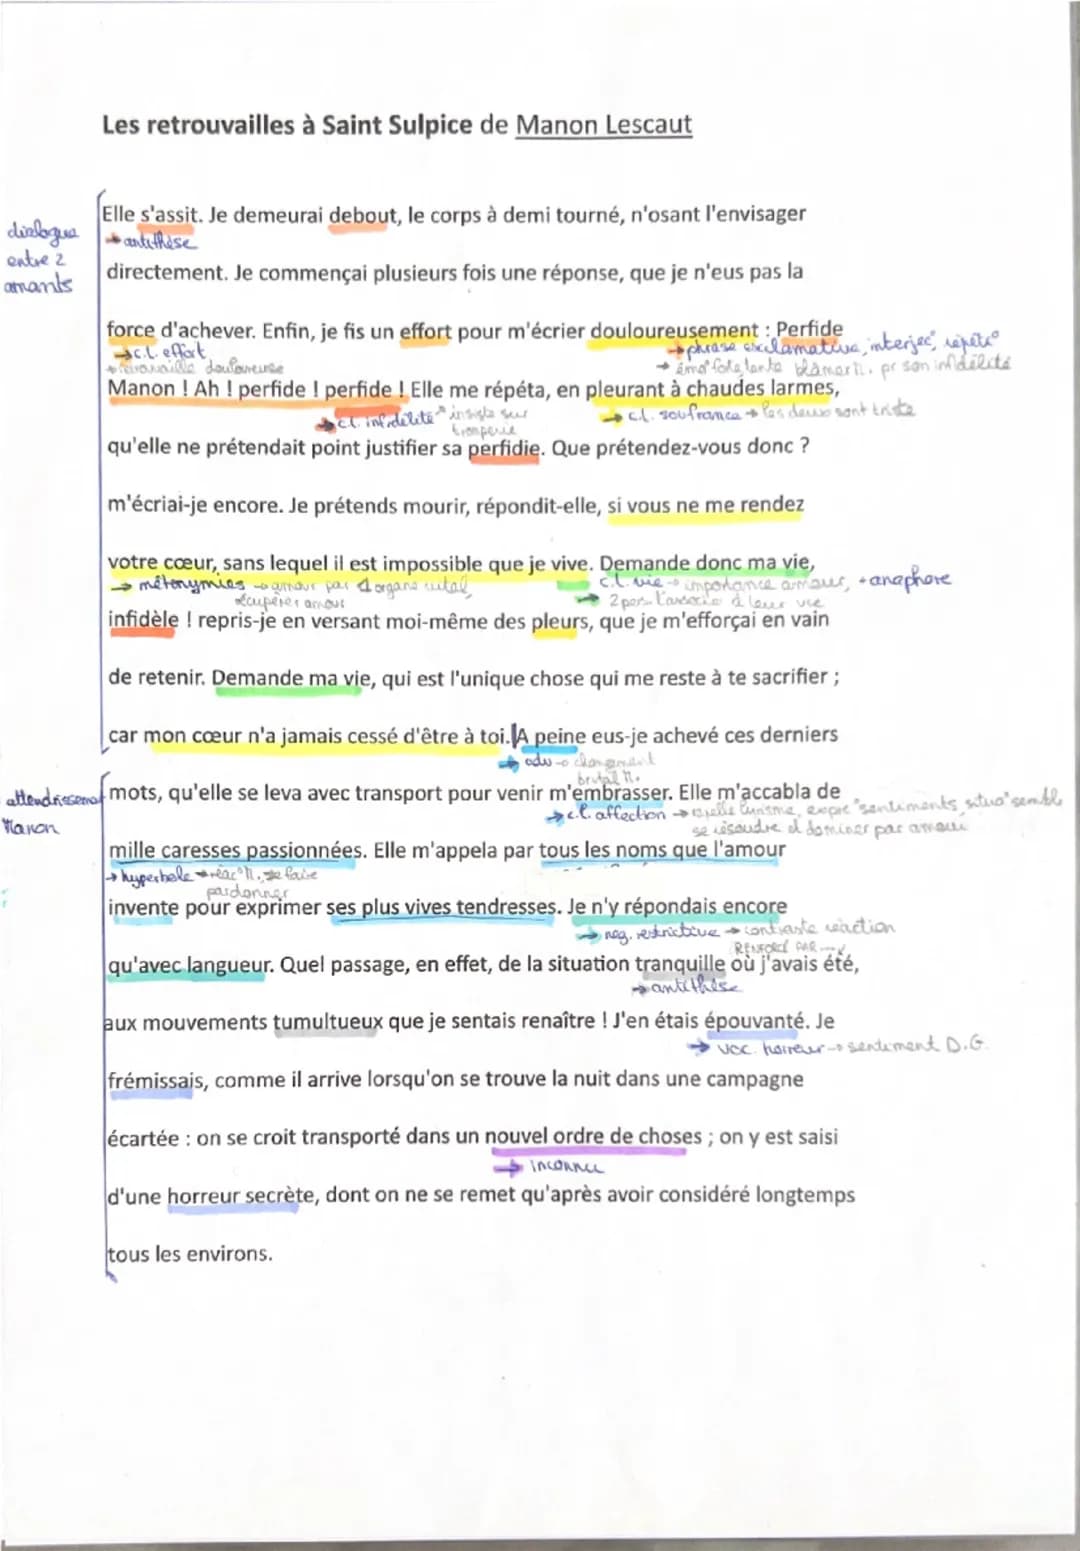 Les retrouvailles à Saint Sulpice de Manon Lescaut
dialogue
entre 2
amants
Elle s'assit. Je demeurai debout, le corps à demi tourné, n'osant l'envisager
→ antithèse
directement. Je commençai plusieurs fois une réponse, que je n'eus pas la
force d'achever. Enfin, je fis un effort pour m'écrier douloureusement : Perfide
→ c.l. effort
→ phrase exclamative, interjec°, répéti°
douloureuse
→ émo° forte, tente blâmer M. pr son infidélité
Manon ! Ah ! perfide ! perfide ! Elle me répéta, en pleurant à chaudes larmes,
→ c.l. infidélité insiste sur
tromperie
→ c.l. souffrance → les deux sont triste
qu'elle ne prétendait point justifier sa perfidie. Que prétendez-vous donc ?
m'écriai-je encore. Je prétends mourir, répondit-elle, si vous ne me rendez
votre cœur, sans lequel il est impossible que je vive. Demande donc ma vie,
→ métonymies → amour par 1 organe vital,
récupérer amour
c.l. vie → importance amour, + anaphore
→ 2 pers. l'associe à leur vie
infidèle ! repris-je en versant moi-même des pleurs, que je m'efforçai en vain
de retenir. Demande ma vie, qui est l'unique chose qui me reste à te sacrifier ;
car mon cœur n'a jamais cessé d'être à toi. A peine eus-je achevé ces derniers
→ adv → changement
brutal M.
attendrissement
Manon
mots, qu'elle se leva avec transport pour venir m'embrasser. Elle m'accabla de
→ c.l. affection → lyrisme, sentiments, situa° semble
se résoudre et dominer par amour
mille caresses passionnées. Elle m'appela par tous les noms que l'amour
→ hyperbole → réac° M. se faire
pardonner
invente pour exprimer ses plus vives tendresses. Je n'y répondais encore
→ nég. restrictive → contraste réaction
RENFORCÉ PAR
qu'avec langueur. Quel passage, en effet, de la situation tranquille où j'avais été,
→ antithèse
aux mouvements tumultueux que je sentais renaître ! J'en étais épouvanté. Je
→ voc. horreur → sentiment D.G.
frémissais, comme il arrive lorsqu'on se trouve la nuit dans une campagne
écartée : on se croit transporté dans un nouvel ordre de choses ; on y est saisi
→ inconnu
d'une horreur secrète, dont on ne se remet qu'après avoir considéré longtemps
tous les environs.